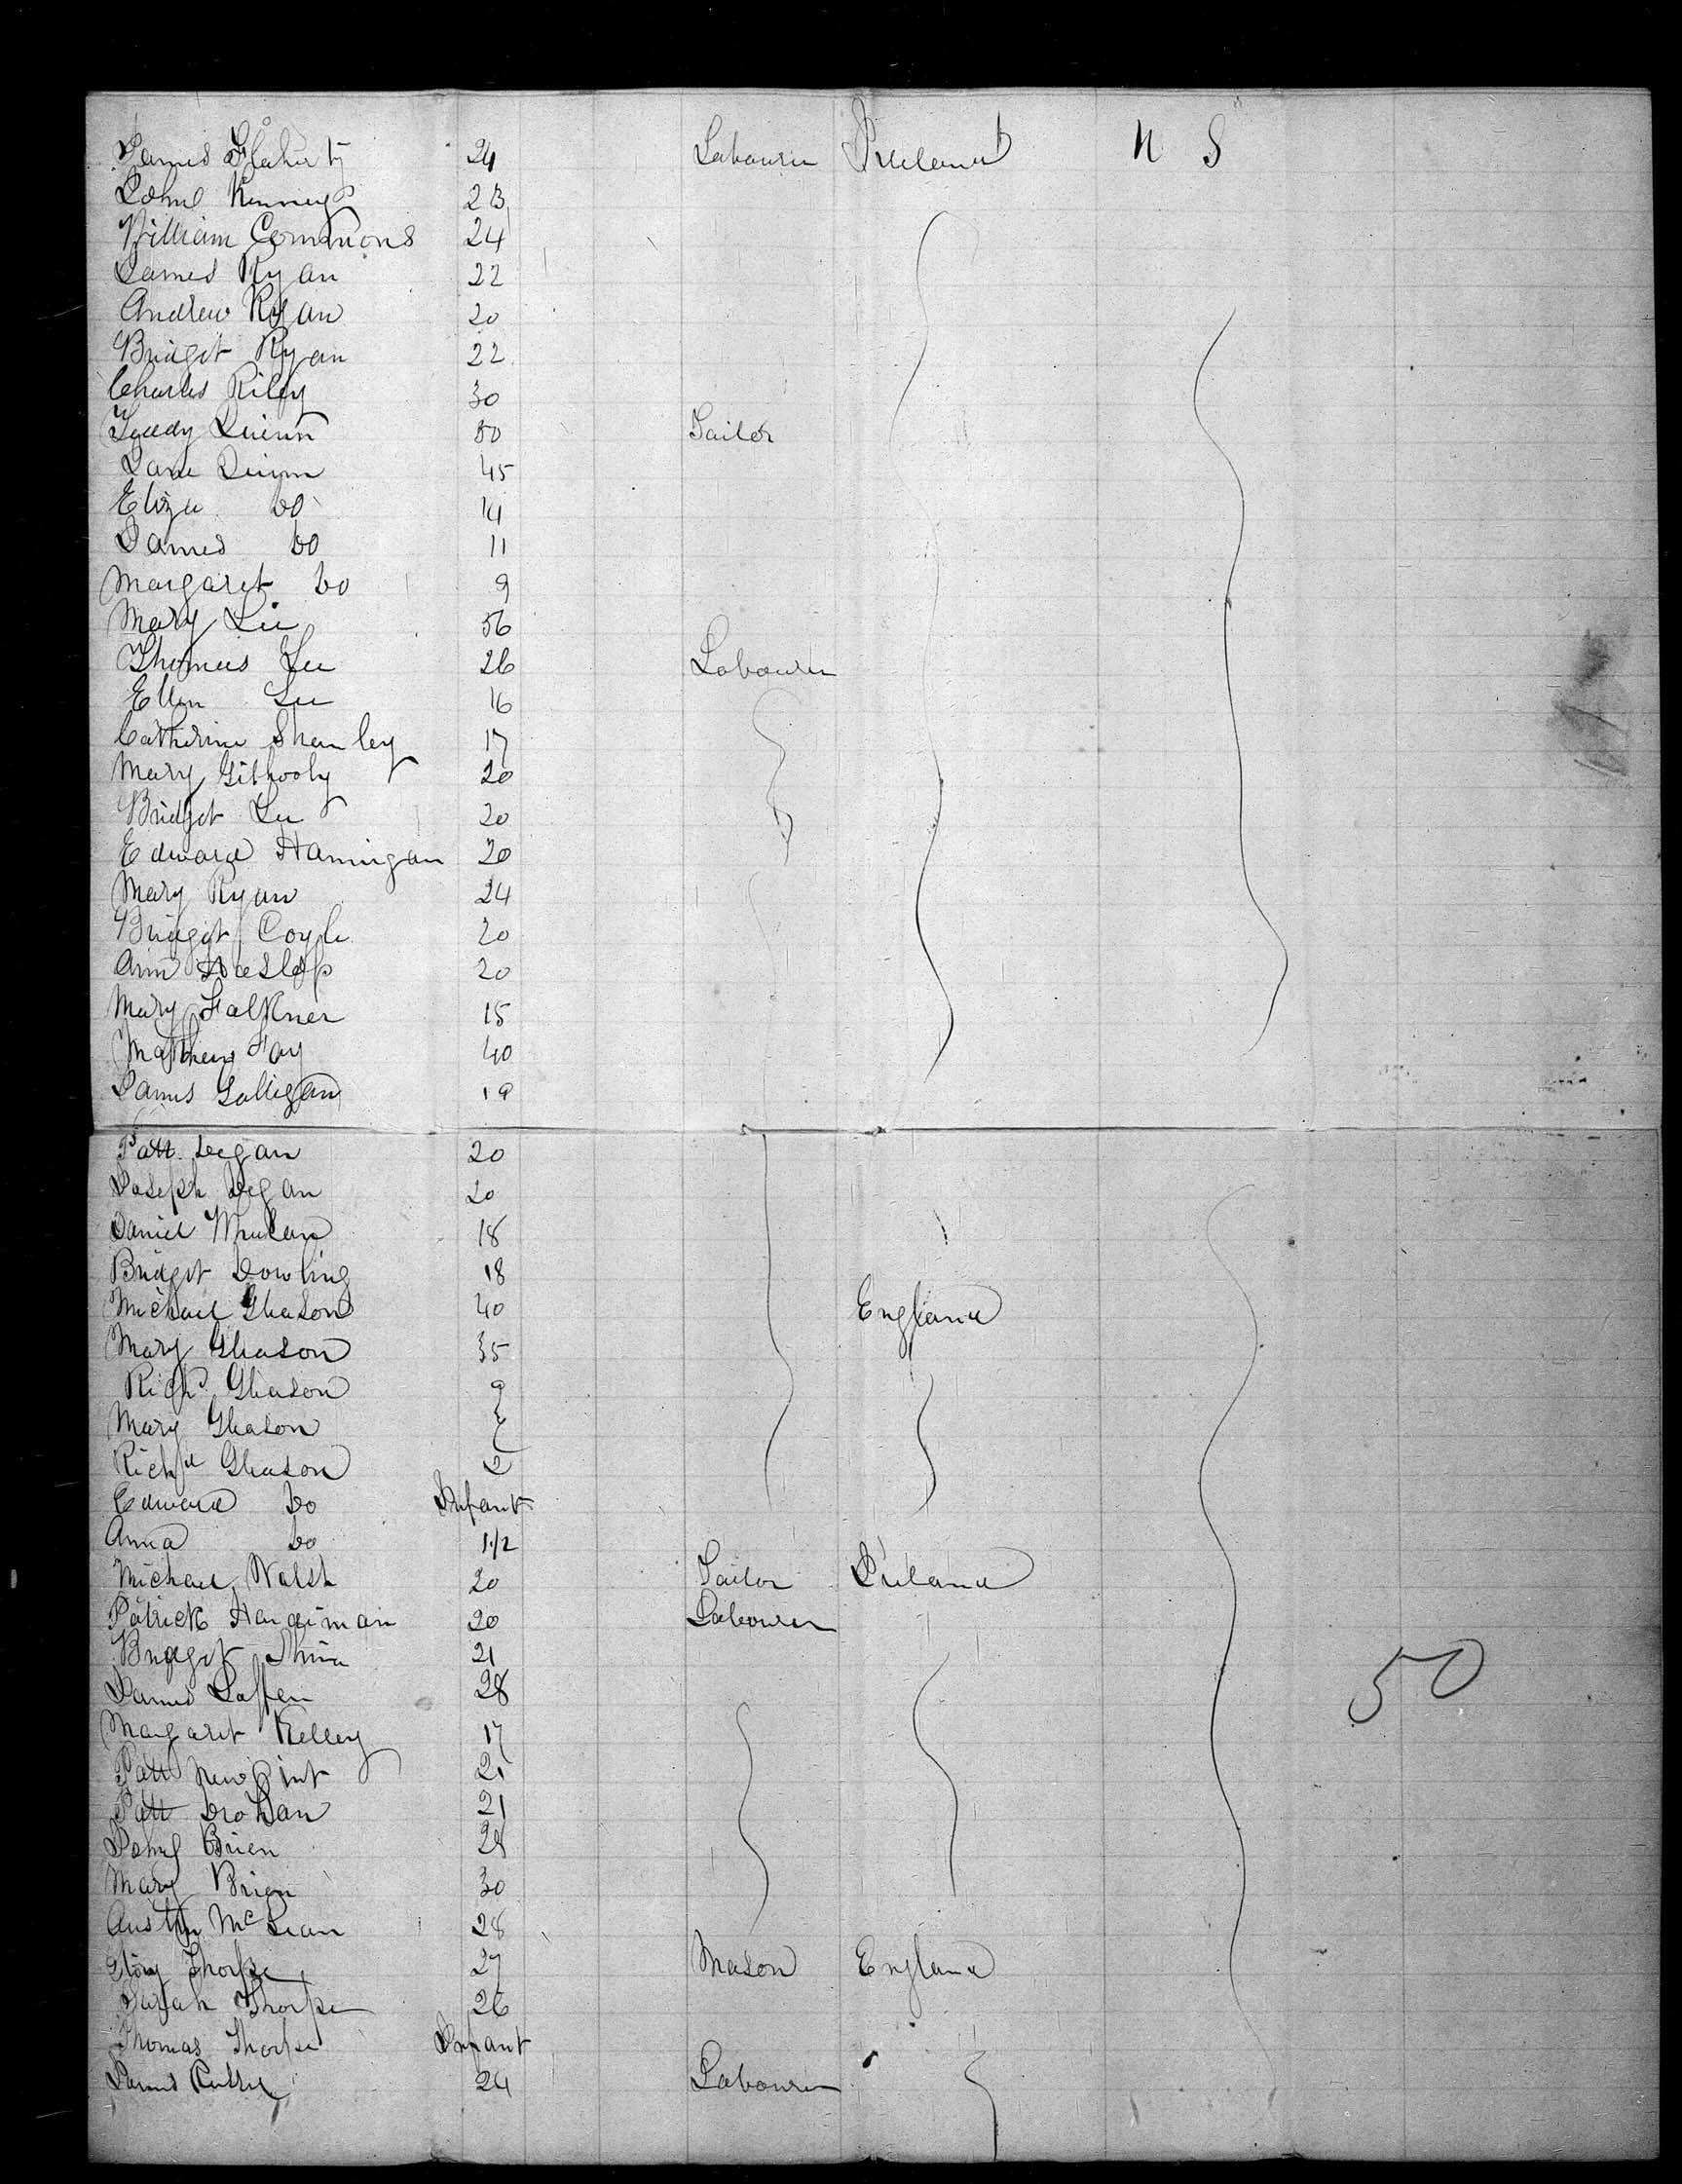 James Flaherty 24 Labourer Ireland U S
John Kenney 23
William Commons 24
James Ryan 22
Andrew Ryan 20
Bridget Ryan 22
Charles Riley 30
Thady Quinn 50 Tailor
Jane Quinn 45
Eliza Do 14
James Do 11
Margaret Do 9
Mary Lee 56
Thomas Lee 26 Labourer
Ellen Lee 16
Catherine Shanley 17
Mary Gilhooly 20
Bridget Lee 20
Edward Hannigan 20
Mary Ryan 24
Bridget Coyle 20
Ann Heslop 20
Mary Falkner 15
Mathew Fay 40
James Galligan 19
Patt Degan 20
Joseph Degan 20
Daniel 18
Bridget Dowling 18
Michael Gleason 40 England
Mary Gleason 35
Richd Gleason 9
Mary Gleason
Richd Gleason 2
Edward Do Infant
Anna Do 1/2
Michael Walsh 20 Tailor Ireland
Patrick Hardiman 20 Labourer
Bridget 21
James Laffen 28
Margaret Kelley 17
Patt 21
Patt Drohan 21
John Brien 28
Mary Brien 30
Austin McLean 28
Thorpe 27 Mason England
Sarah Thorpe 26
Thomas Thorpe Infant
James 24 Labourer
50